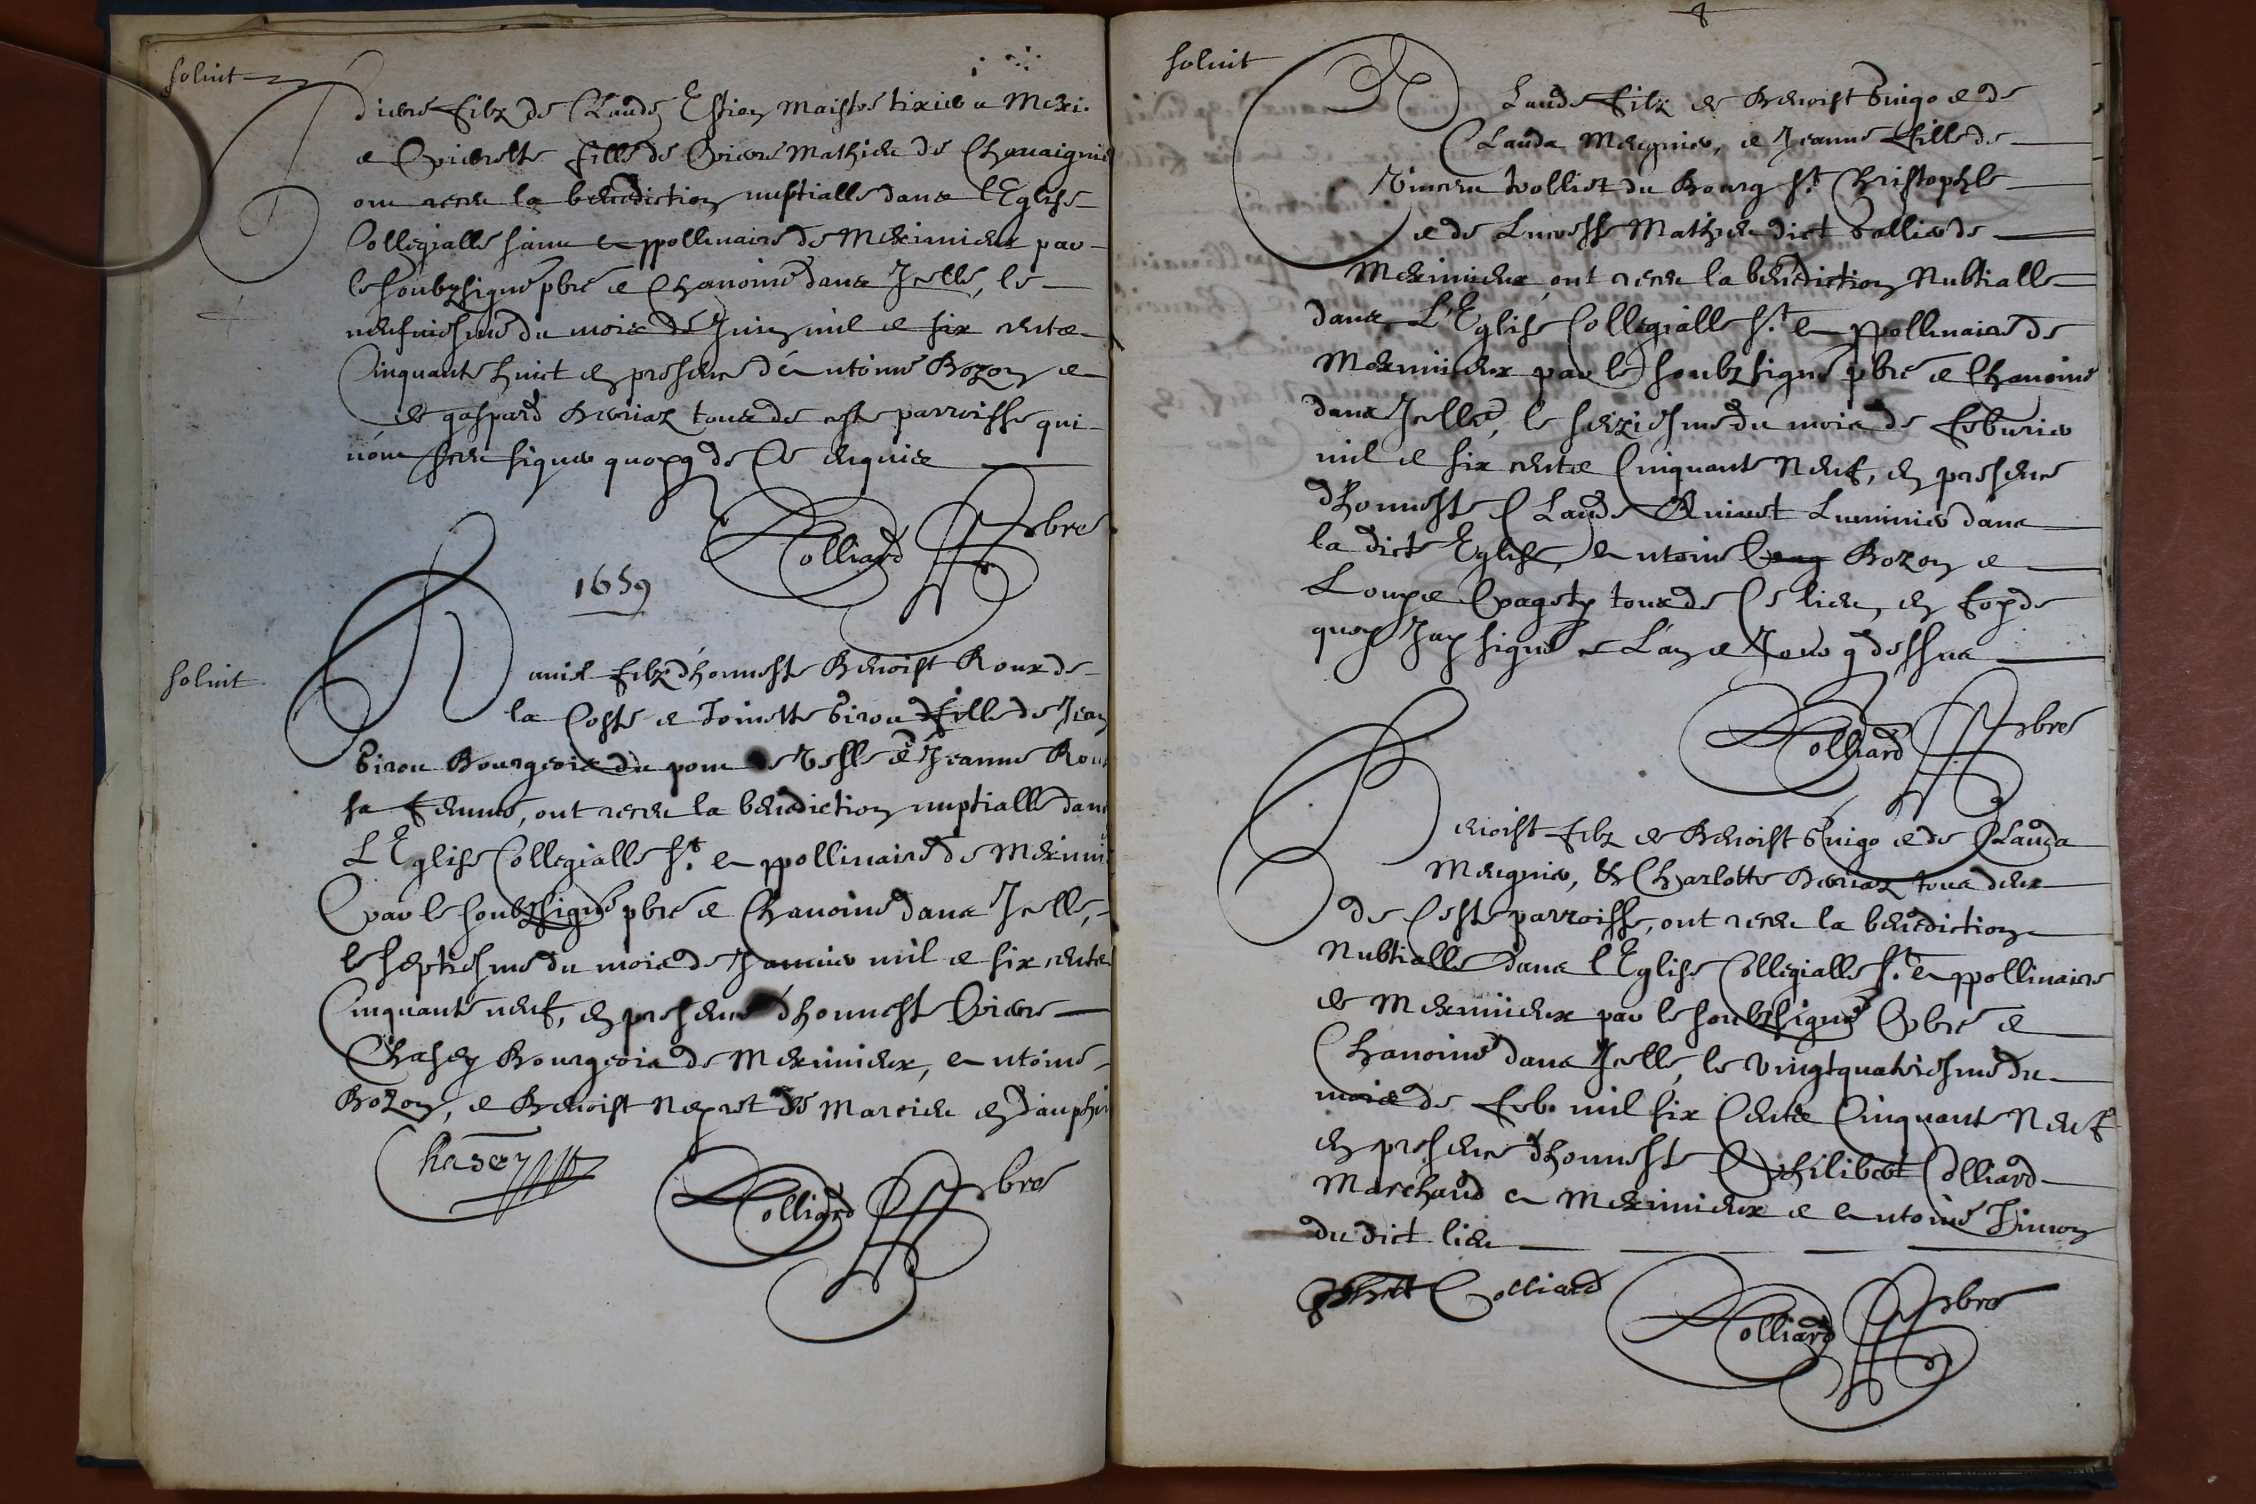 soluit
Pierre filz de Claude Estien maistre tixier a Mexi.
e Pierrette fille de Pierre Mathieu de Chavaignie
ont receu la benediction nuptialle dans l'Eglise
Collegialle sainct Appollinaire de Meximieux par
le soubzsigné pbre e Chanoine dans Icelle, le
neufuiesme du mois de Juin mil e six cents
Cinquante huict en presence d'Antoine Bozon e
de gaspard Derriaz tous de ceste parroisse qui
n'ont sceu signer quoyq de Ce enquis
Colliard pbre
1659
soluit
Daniel filz d'honneste Benoist Roux de
la Coste e Toinette Girou fille de Jean
Girou Bourgeois du pont de Vesle e Jeanne Roux
sa femme, ont receu la benediction nuptialle dans
L'Eglise Collegialle St. Appollinaire de Meximi
Par le soubzsigné pbre e Chanoine dans Icelle,
le septiesme du mois de Januier mil e six cents
Cinquante neuf, en presence d'honneste Pierre
Chasey Bourgeois de Meximieux, Antoine
Bozon, e Benoist Neyret de Marcieu en dauphin
Chasey
Colliard pbre
soluit
Claude filz de Benoist Guigo e de
Clauda Mergnier, e Jeanne fille de
Vincen Volliet du Bourg St. Christophle
e de Lucresse Mathieu dict Gallier de
Meximieux, ont receu la benediction Nubtialle
dans L'Eglise Collegialle St. Appollinaire de
Meximieux par le soubzsigné pbre e Chanoine
dans Icelle, le seiziesme du mois de feburier
mil e six cents Cinquante Neuf, en presence
d'honneste Claude Quinet Luminier dans
la dicte Eglise, Antoine Bozon e
Loupe Pagety tous de Ce lieu, en foy de
quoy J'ay signé L'an e Jour q dessus
Colliard pbre
Benoist filz de Benoist Guigo e de Clauda
Mergnier, & Charlotte Derriaz tous deux
de Ceste parroisse, ont receu la benediction
Nubtialle dans l'Eglise Collegialle St. Appollinaire
de Meximieux par le soubzsigné Pbre e
Chanoine dans Icelle, le vingtquatriesme du
mois de feb. mil six Cents Cinquante Neuf
en presence d'honneste Philibert Colliard
Marchand a Meximieux e Antoine Simon
du dict lieu
Colliard
Colliard pbre